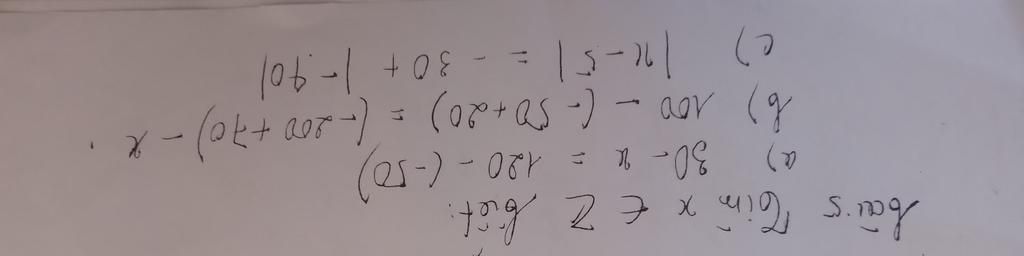 bài 5 Tìm x ∈ Z biết:
a) 30 - x = 120 - (-50)
b) 100 - (-50+20) = (-200+70) - x.
c) |x-5| = -30 + |-90|